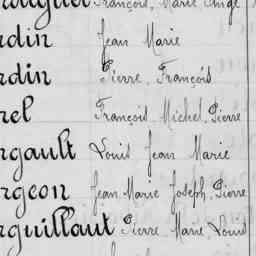 François, Marie Ange
rdin Jean Marie
rdin Pierre François
rel François Michel Pierre
rgault Louis Jean Marie
rgeon Jean Marie Joseph Pierre
rguillaut Pierre Marie Louis